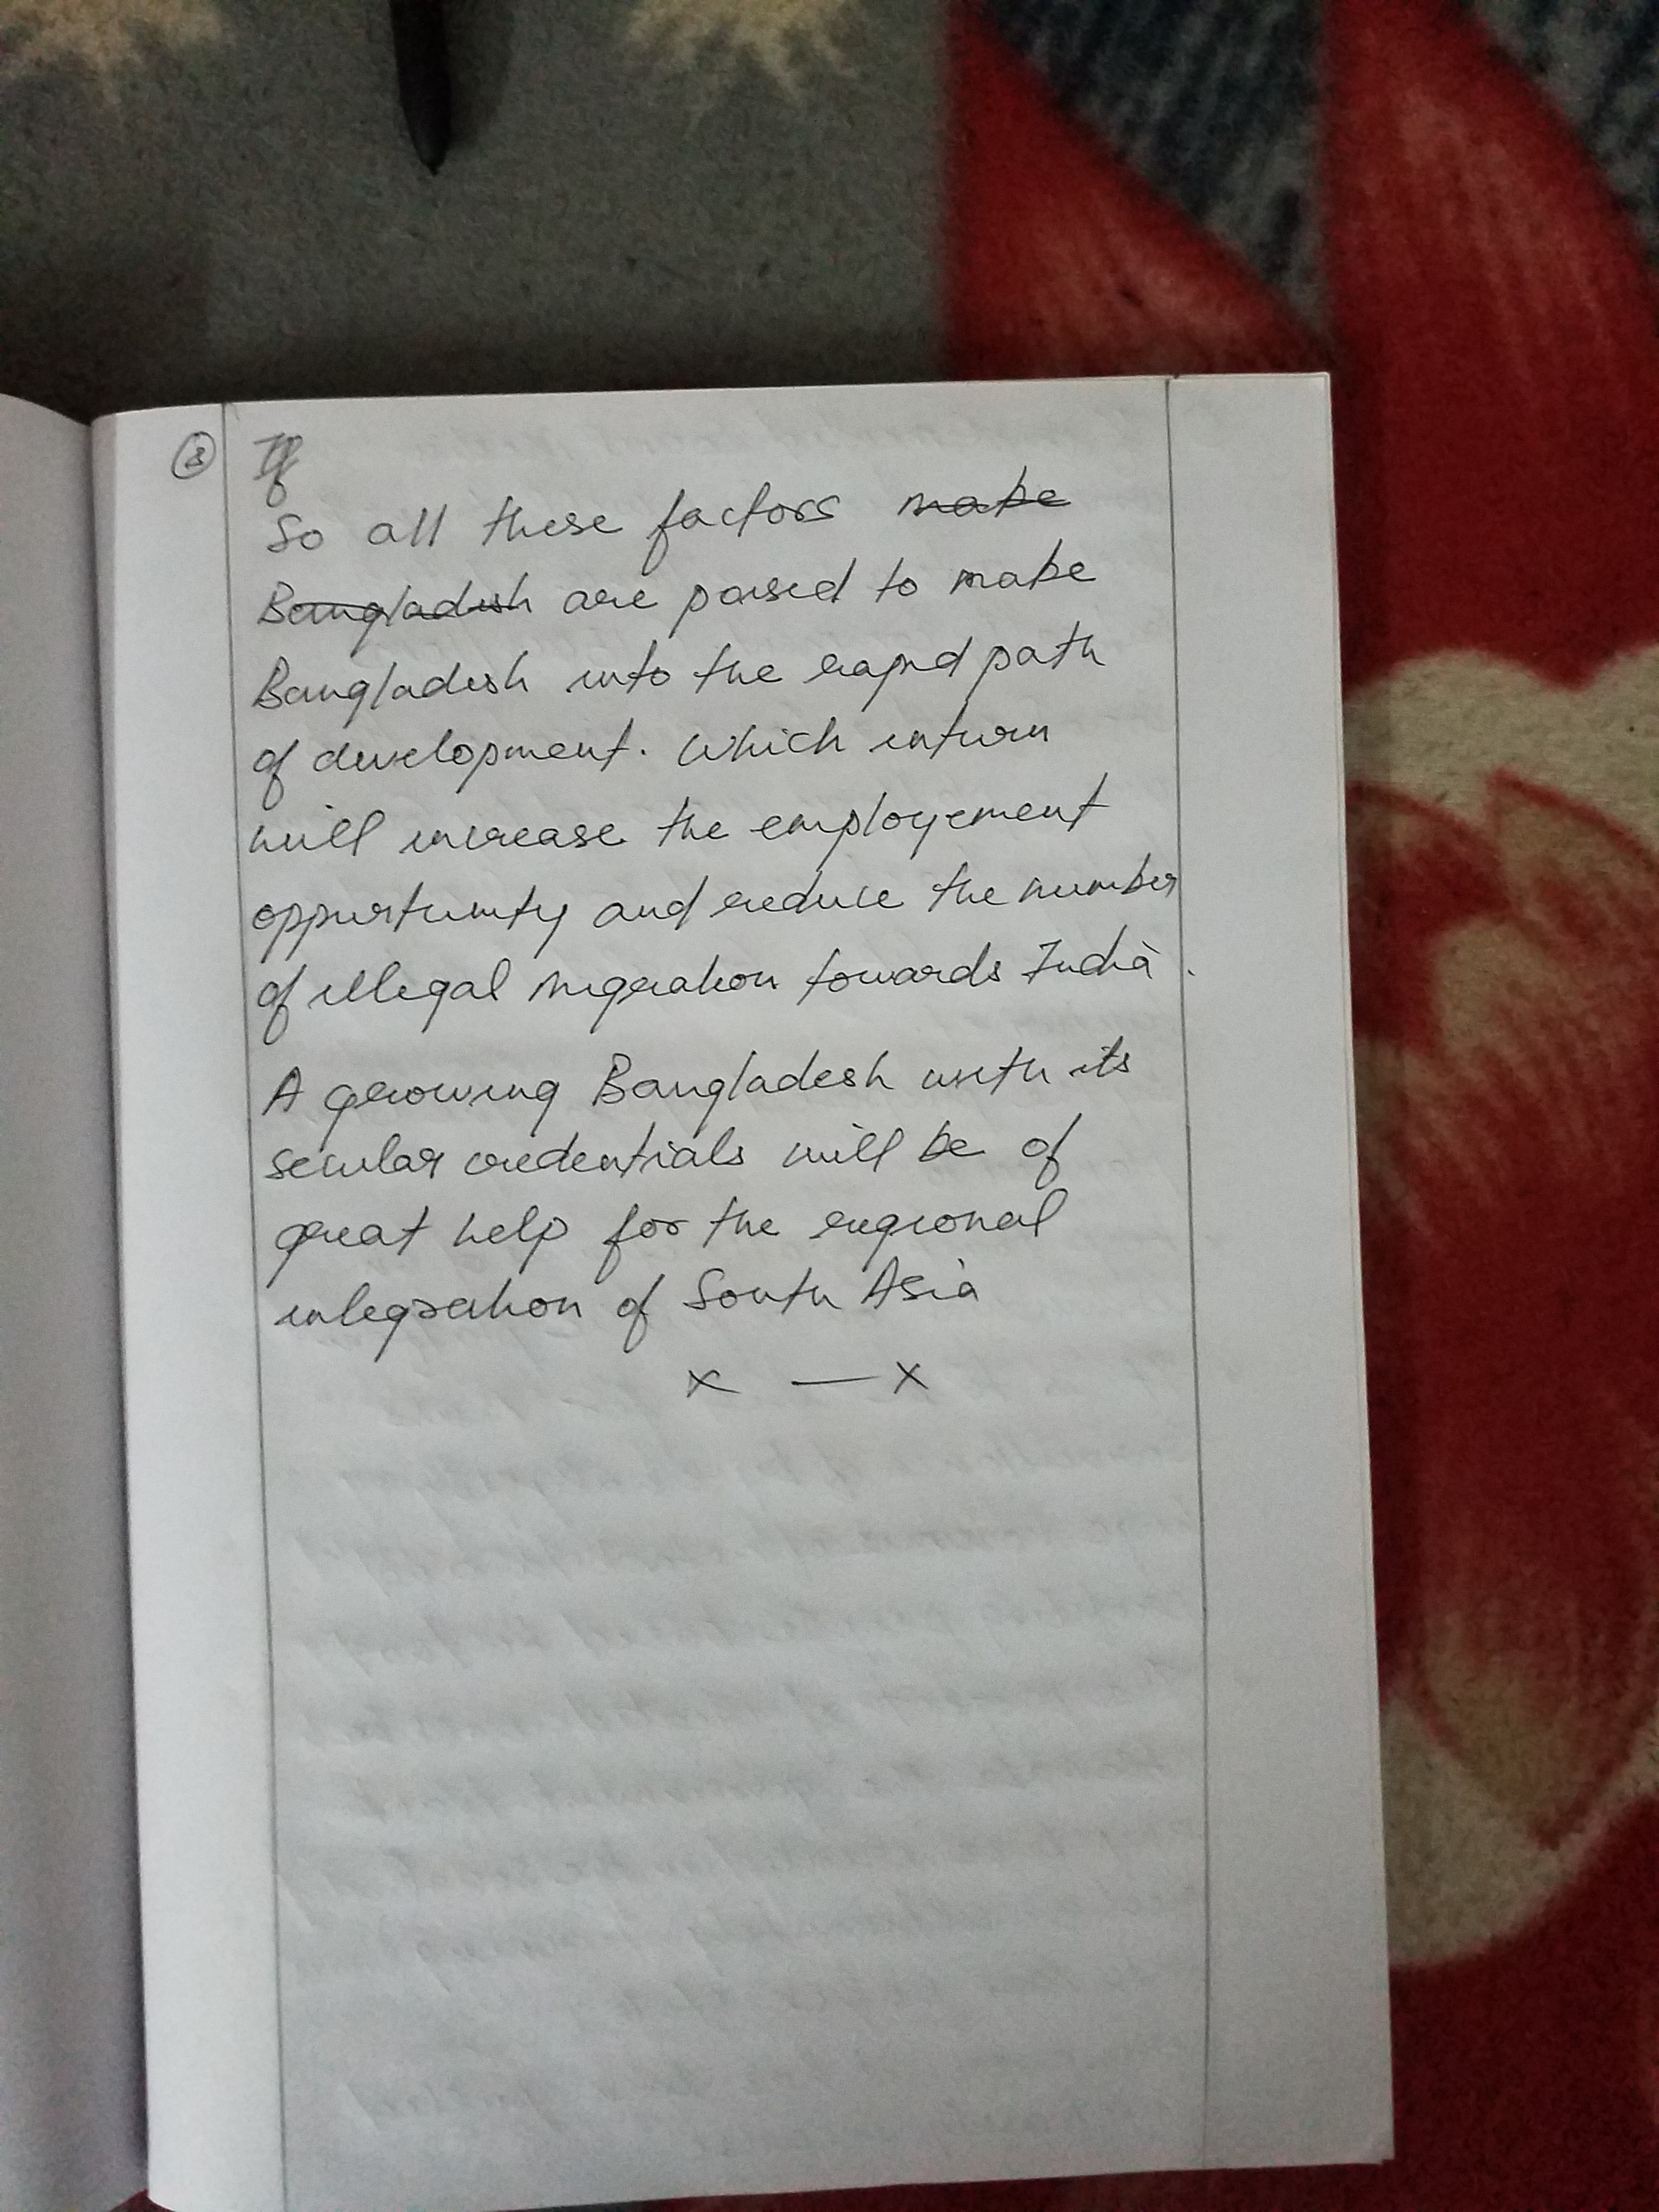 ③ If
So all these factors make
Bangladesh are poised to make
Bangladesh into the rapid path
of development. Which inturn
will increase the employement
oppurtunity and reduce the number
of illegal migration towards India.
A growing Bangladesh with its
secular credentials will be of
great help for the regional
integration of South Asia
x — x